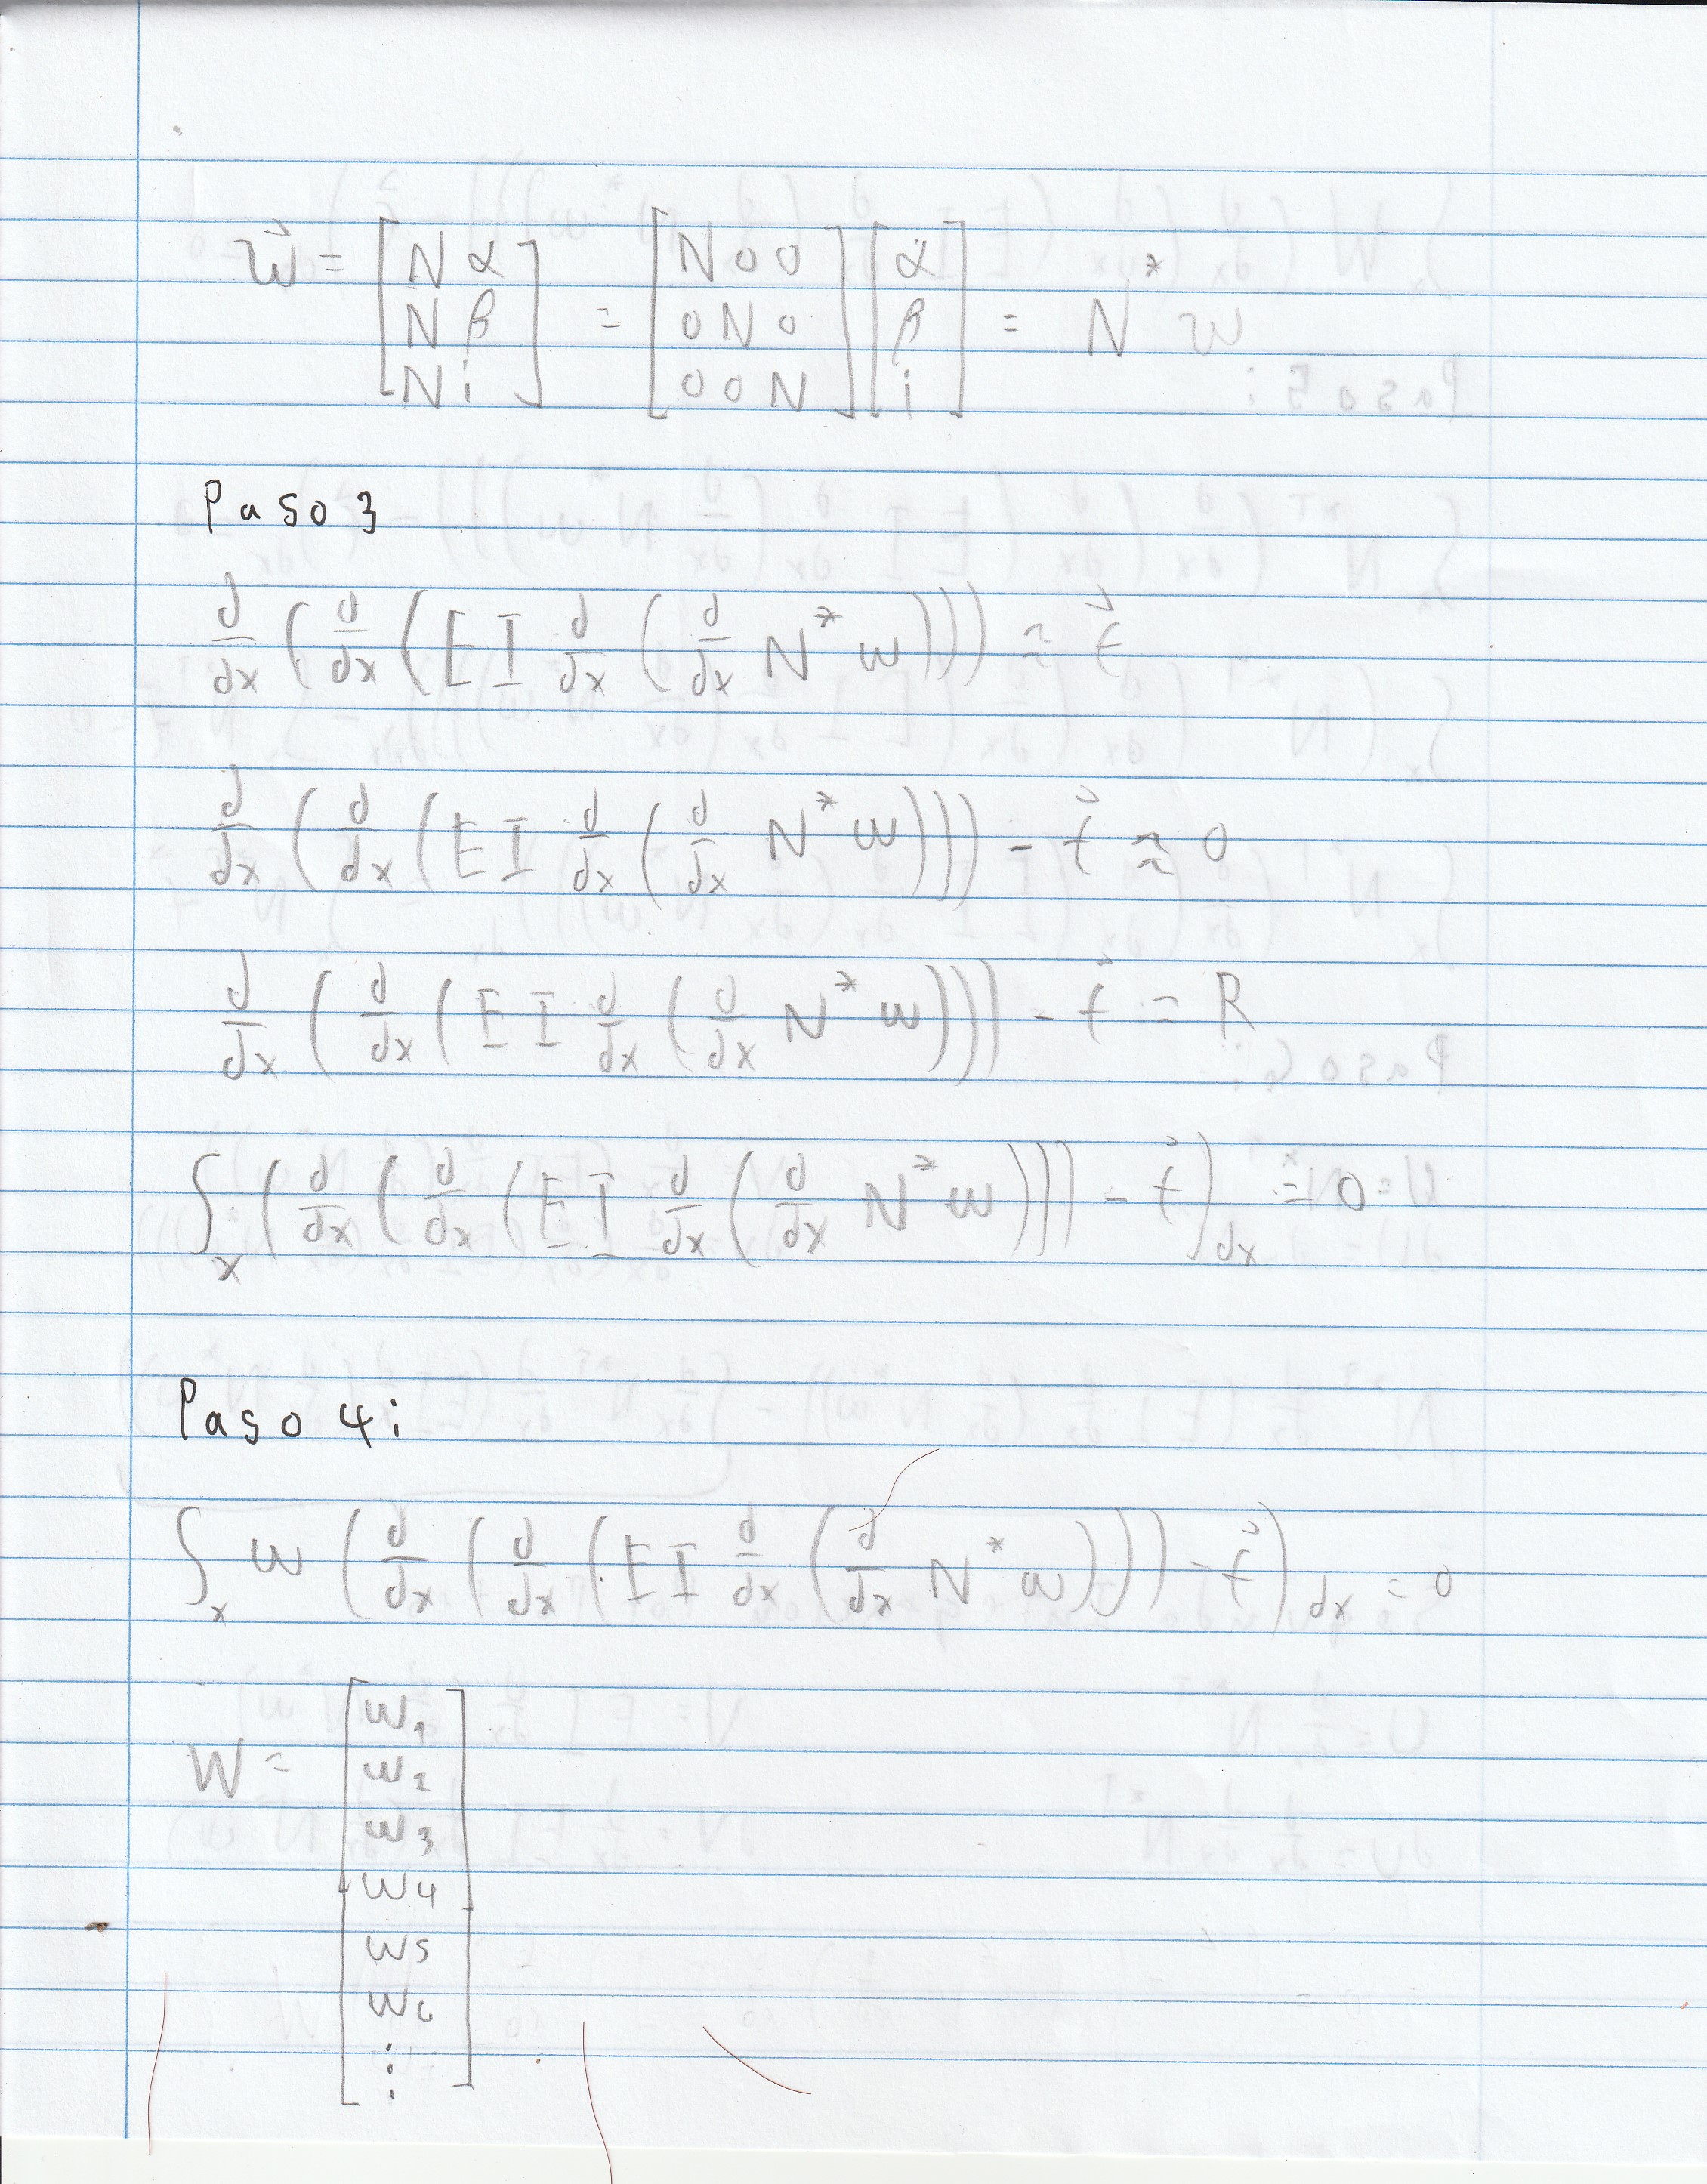 w⃗ = [N α; N β; N i] = [N 0 0; 0 N 0; 0 0 N] [α; β; i] = N* w
Paso 3
d/dx (d/dx (E I d/dx (d/dx N* w))) ≈ f⃗
d/dx (d/dx (E I d/dx (d/dx N* w))) - f⃗ ≈ 0
d/dx (d/dx (E I d/dx (d/dx N* w))) - f⃗ = R
∫x (d/dx (d/dx (E I d/dx (d/dx N* w))) - f⃗) dx = 0
Paso 4:
∫x w (d/dx (d/dx (E I d/dx (d/dx N* w))) - f⃗) dx = 0
W = [w1
w2
w3
w4
w5
w6
⋮]